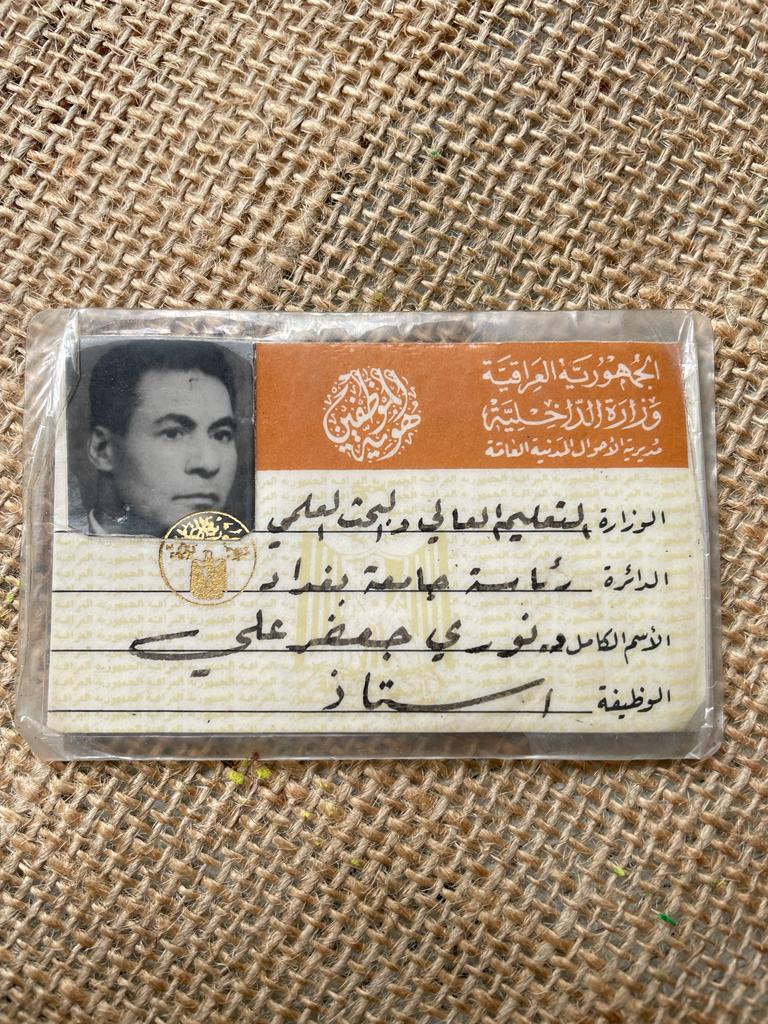 الجمهورية العراقية
وزارة الداخلية
مديرية الأحوال المدنية العامة
هوية الموظفين
الوزارة التعليم العالي والبحث العلمي
الدائرة رئاسة جامعة بغداد
الأسم الكامل د. نوري جعفر علي
الوظيفة استاذ